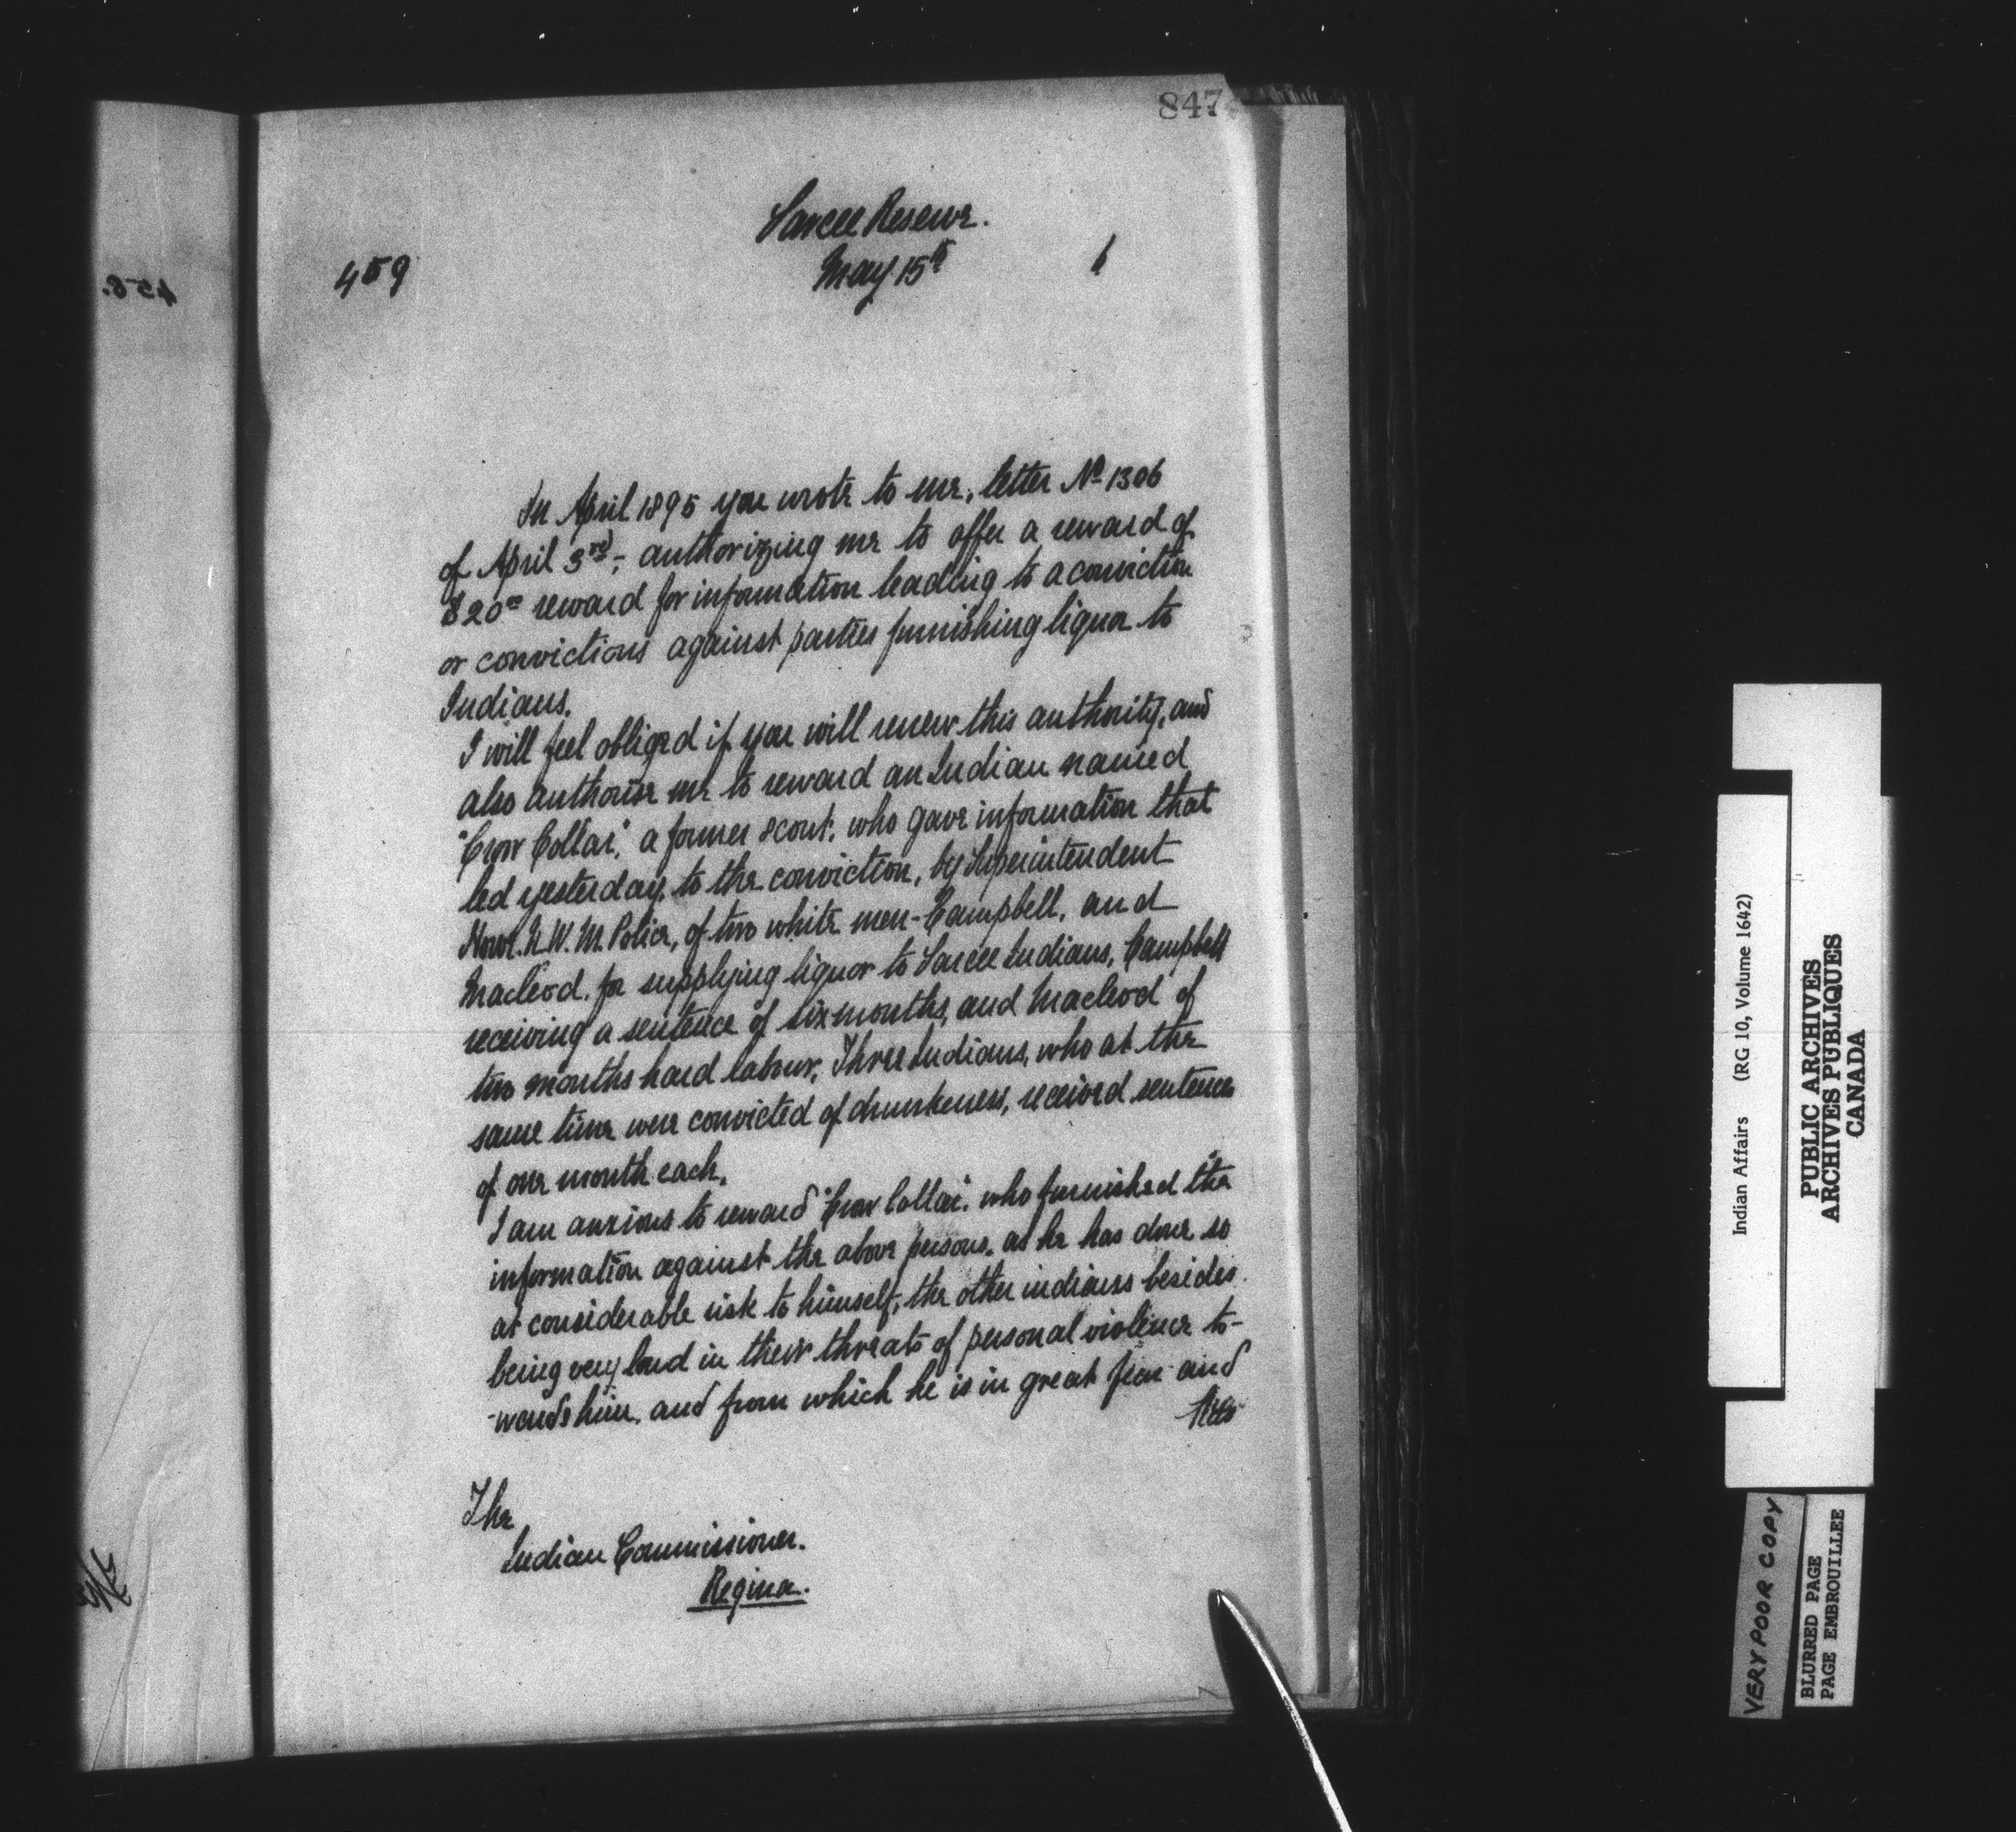 847
Sarcee Reserve.
459
May 15th
6
In April 1895 you wrote to me, letter No 1306
of April 3rd, authorizing me to offer a reward of
$20.00 reward for information leading to a conviction
or convictions against parties furnishing liquor to
Indians.
I will feel obliged if you will renew this authority, and
also authorise me to reward an Indian named
"Crow Collar," a former scout, who gave information that
led yesterday, to the conviction, by Superintendent
Howe. N.W.M. Police, of two white men - Campbell, and
Macleod, for supplying liquor to Sarcee Indians, Campbell
receiving a sentence of six months, and Macleod of
two months hard labour, Three Indians, who at the
same time were convicted of drunkeness, received sentences
of one month each.
I am anxious to reward "Crow Collar", who furnished the
information against the above persons, as he has done so
at considerable risk to himself, the other indians besides
being very loud in their threats of personal violence to-
-wards him, and from which he is in great fear and
The
Indian Commissioner.
Regina.
458.
Indian Affairs (RG 10, Volume 1642)
PUBLIC ARCHIVES
ARCHIVES PUBLIQUES
CANADA
VERY POOR COPY
BLURRED PAGE
PAGE EMBROUILLEE